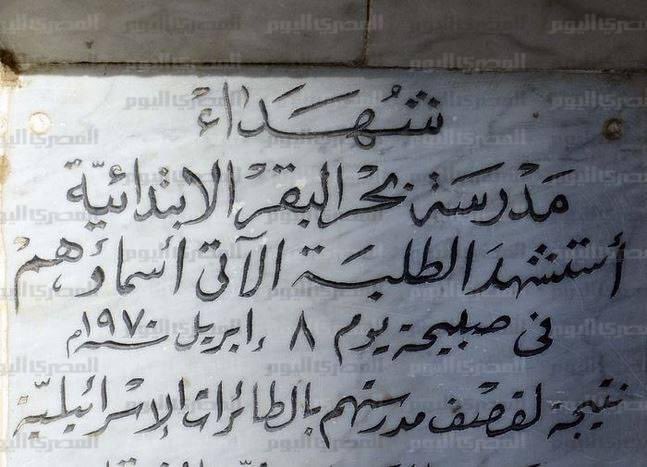 شُهَدَاءُ
مَدْرسَة بَحْر البقَرْ الابْتدَائيّة
أستشهدَ الطلبَة الآتى أسماؤهمْ
فى صبيحة يوم ٨ ابريل سنة ١٩٧٠م
نتيجة لقصف مدرستهم بالطائرات الإسْرائيليّة